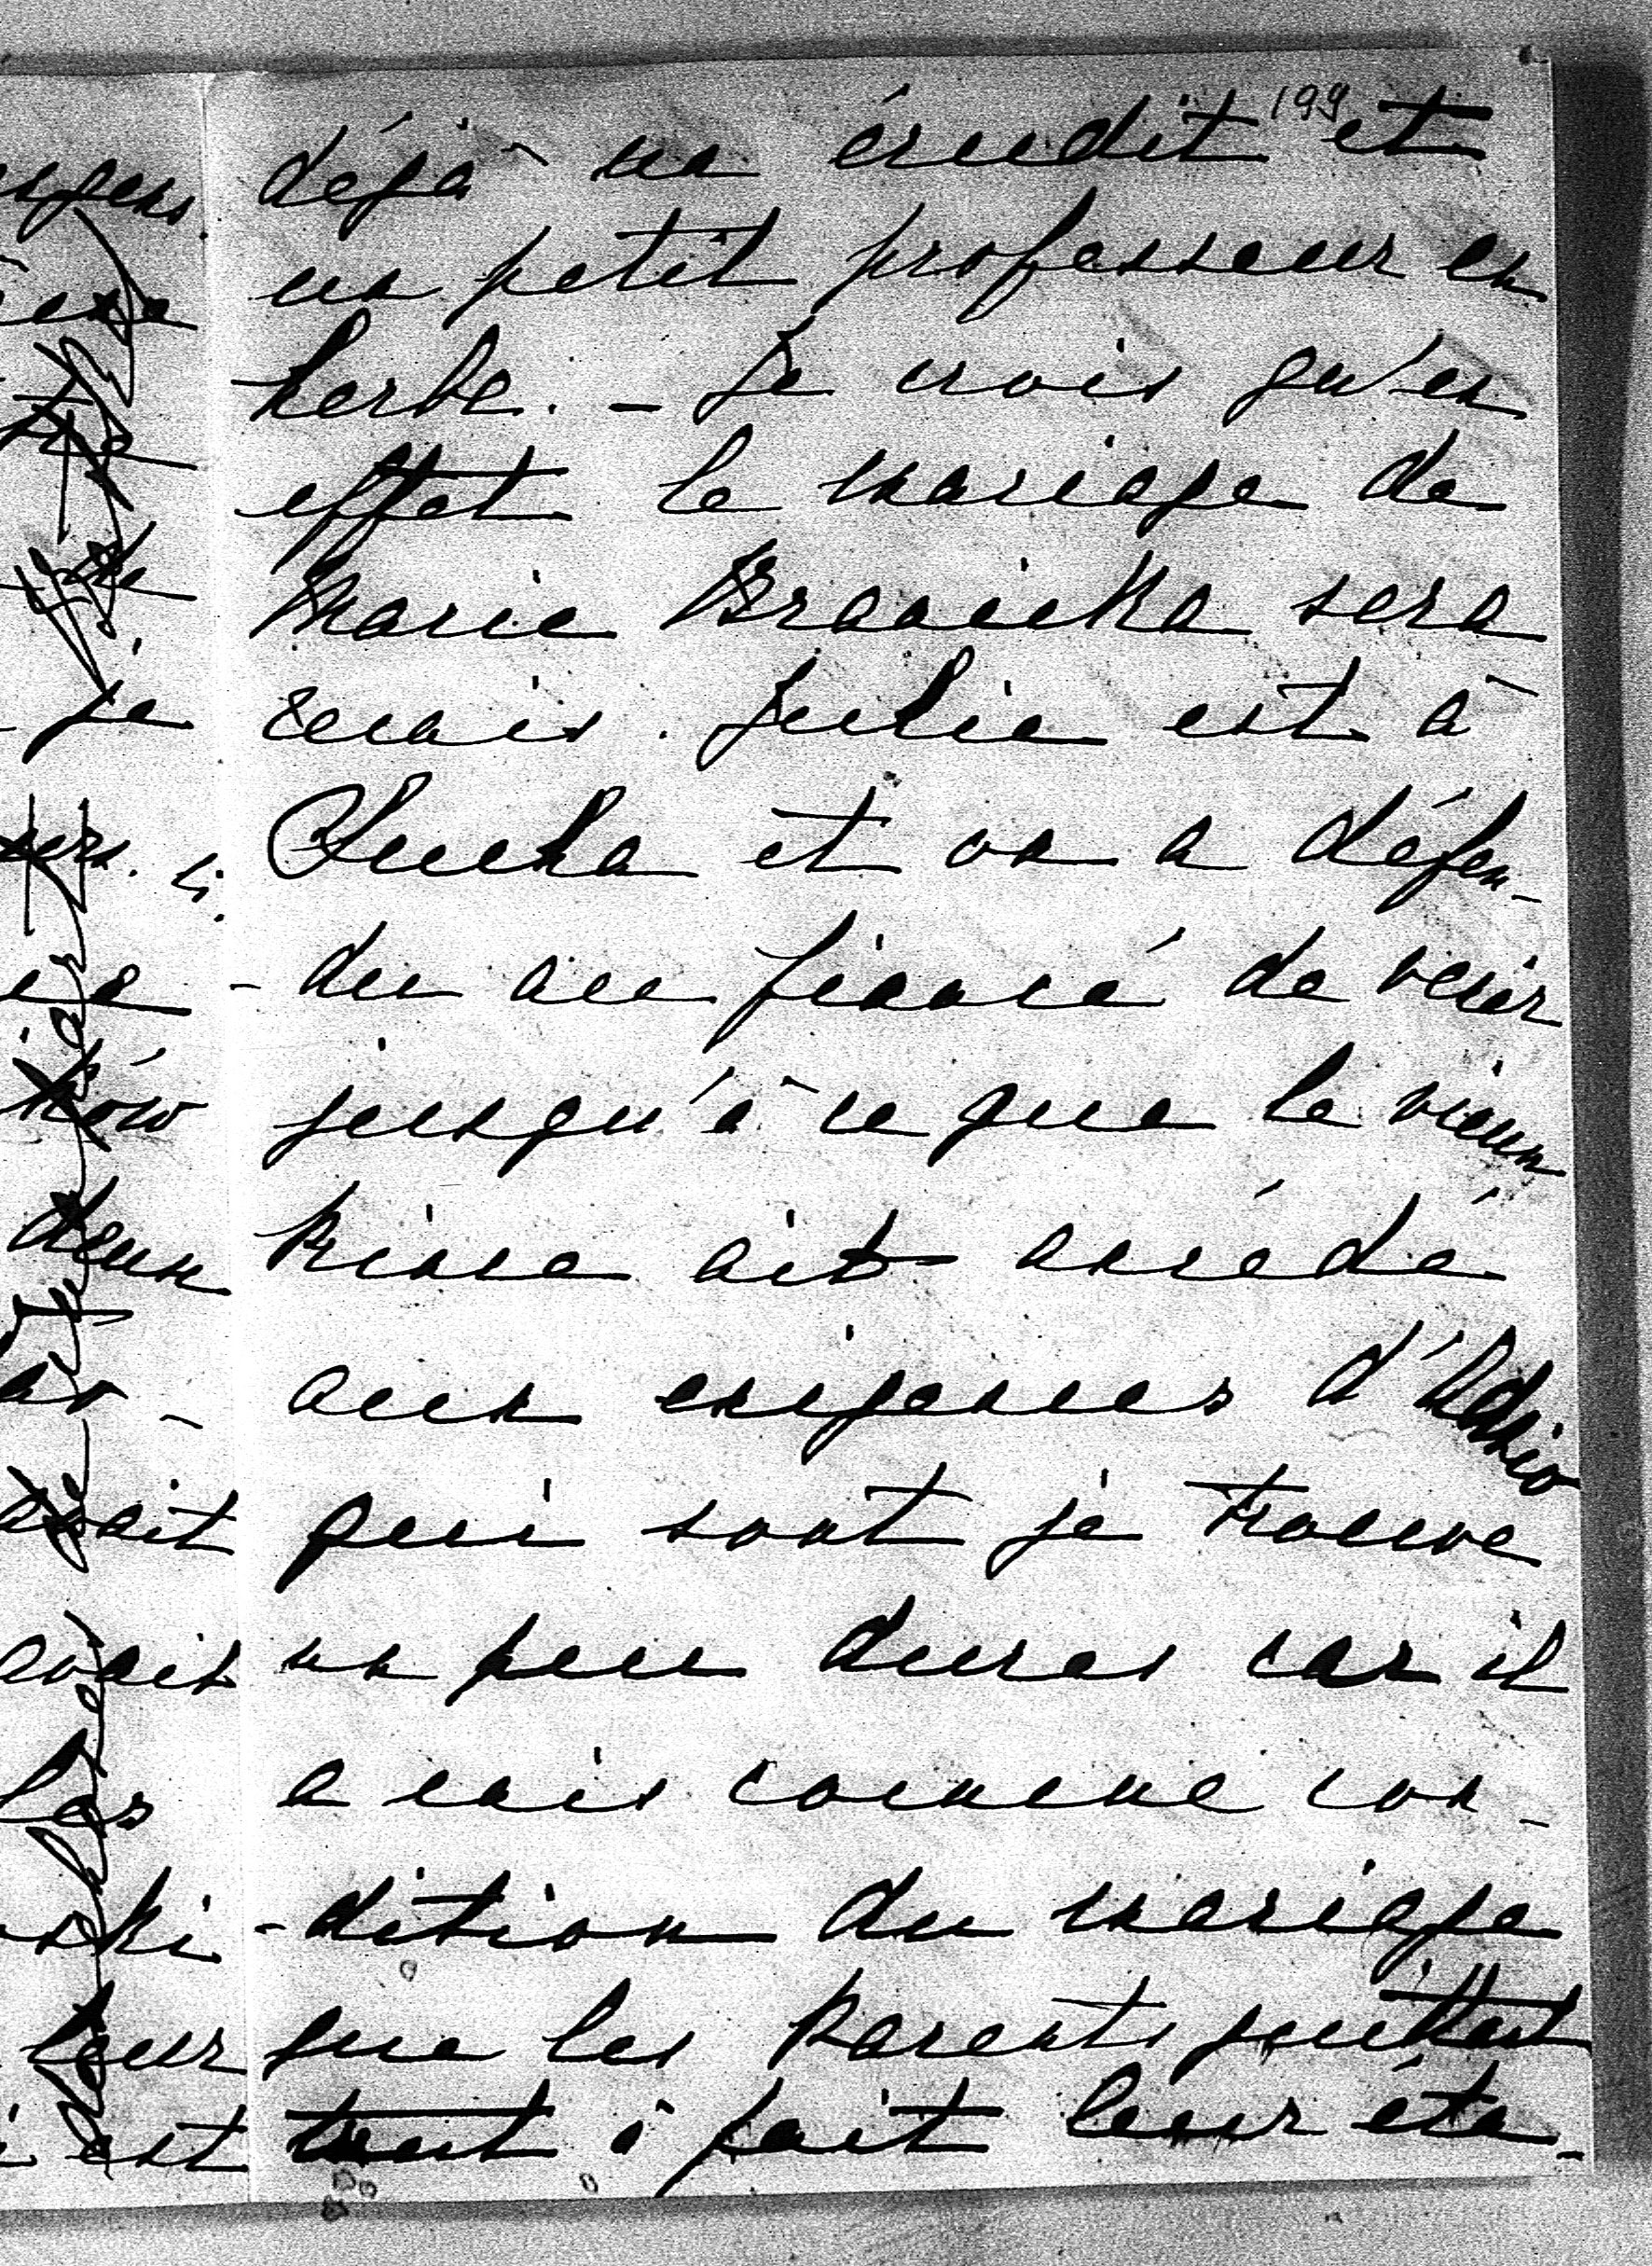 199
déjà un érudit et
un petit professeur en
herbe. - Je crois qu'en
effet le mariage de
Marie Branicka sera
remis. Julie est à
et on a défen-
-du au fiancé de venir
jusqu'à ce que le vieux
Prince ait accédé
aux exigences d'Adzio
qui sont je trouve
un peu dures car il
a mis comme con-
-dition du mariage
que les Parents quittent
tout à fait leur éta-